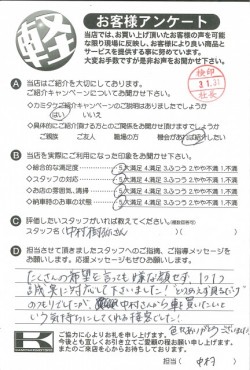 軽
お客様アンケート
当店では、お買い上げ頂いたお客様の声を可能
な限り現場に反映し、お客様により良い商品と
サービスを提供する事に努めています。
大変お手数ですが是非お声をお聞かせ下さい。
検印
社長
A 当店はご紹介を大切にしております。
ご紹介キャンペーンについてお聞かせ下さい。
ご紹介キャンペーンのご説明はありましたでしょうか
はい いいえ
◇具体的にご紹介頂ける方との関係をお聞かせ頂けますでしょうか
ご親族 ご友人 職場の方
B 当店を実際にご利用になった印象をお聞かせ下さい。
◇総合的な満足度 5.大満足 4.満足 3.ふつう 2.やや不満 1.不満
◇スタッフの対応 5.大満足 4.満足 3.ふつう 2.やや不満 1.不満
◇お店の雰囲気、清掃 5.大満足 4.満足 3.ふつう 2.やや不満 1.不満
◇納車時のお車の状態 5.大満足 4.満足 3.ふつう 2.やや不満 1.不満
C 評価したいスタッフがいれば教えてください。
スタッフ名 中村
D 担当させて頂きましたスタッフへのご指摘、ご指導メッセージを
お願いします。応援メッセージもぜひお願いします。
たくさんの希望を言っても嫌な顔せず、1つ1つ
誠実に対応して下さいました!
中村さんから車買いたいと
いう気持ちにしてくれる接客でした!
ご協力に心よりお礼を申し上げます。
今後とも宜しくお引き立てご愛顧の程お願い申し上げます。
またのご来店を心からお待ちしております。
担当( 中村 )